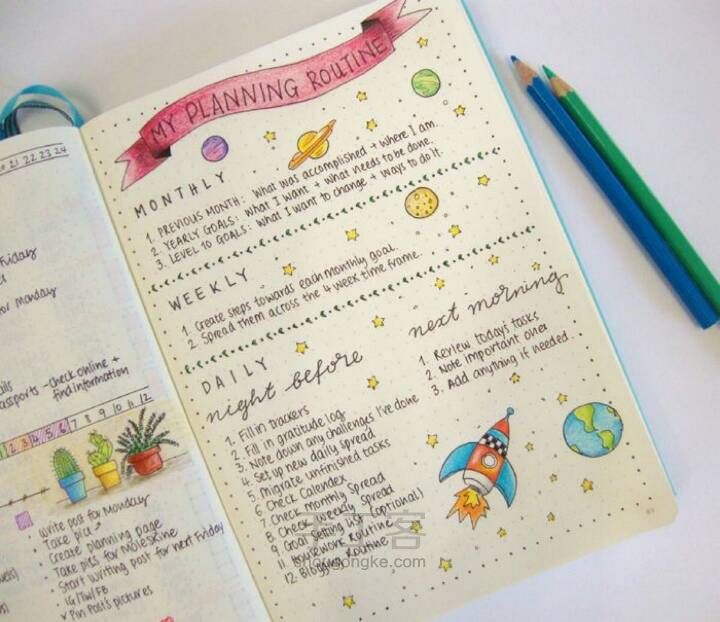 21 22 23 24
Friday
Monday
check online +
find information
1 2 3 4 5 6 7 8 9 10 11 12
Write post for Monday
Take pics
Create planning page
Take pics for Moleskine
Start writing post for next Friday
IG/TW/FB
Pin Post's pictures
MY PLANNING ROUTINE
MONTHLY
1. PREVIOUS MONTH: What was accomplished + where I am
2. YEARLY GOALS: What I want + what needs to be done.
3. LEVEL 10 GOALS: What I want to change + ways to do it.
WEEKLY
1. Create steps towards each monthly goal.
2. Spread them across the 4 week time frame.
DAILY
night before
1. Fill in trackers
2. Fill in gratitude log
3. Note down any challenges I've done
4. Set up new daily spread
5. Migrate unfinished tasks
6. Check Calendex
7. Check monthly spread
8. Check weekly spread
9. Goal Setting list (optional)
11. Housework Routine
12. Blogging Routine
next morning
1. Review today's tasks
2. Note important ones
3. Add anything if needed.
手工客
shougongke.com